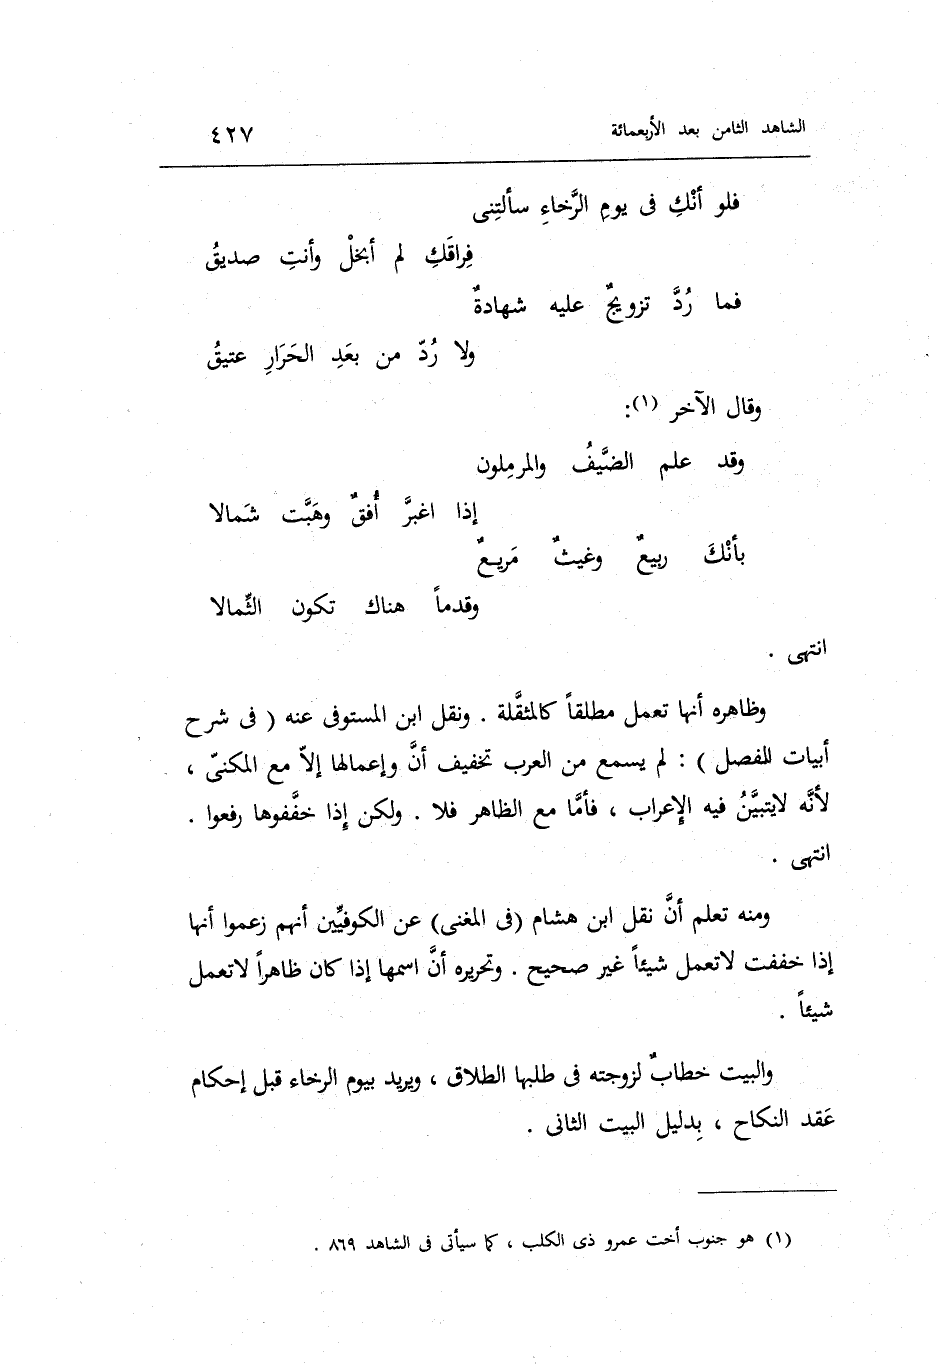 الشاهد الثامن بعد الأربعمائة ٤٢٧
فلو أنْكِ فى يومِ الرَّخاءِ سألتِنى
فِراقَكِ لم أبخلْ وأنتِ صديقُ
فما رُدَّ تزويجٌ عليه شهادةٌ
ولا رُدّ من بعَدِ الحَرَارِ عتيقُ
وقال الآخر (١):
وقد علم الضَّيفُ والمرمِلون
إذا اغبرَّ أُفقٌ وهَبَّت شَمالا
بأنْكَ ربيعٌ وغيثٌ مَريعٌ
وقدماً هناك تكون الثِّمالا
انتهى .
وظاهره أنها تعمل مطلقاً كالمثقَّلة . ونقل ابن المستوفى عنه ( فى شرح
أبيات للفصل ) : لم يسمع من العرب تخفيف أنَّ وإعمالها إلاّ مع المكنىّ ،
لأنَّه لايتبيَّنُ فيه الإعراب ، فأمَّا مع الظاهر فلا . ولكن إذا خفَّفوها رفعوا .
انتهى .
ومنه تعلم أنَّ نقل ابن هشام (فى المغنى) عن الكوفيِّين أنهم زعموا أنها
إذا خففت لاتعمل شيئاً غير صحيح . وتحريره أنَّ اسمها إذا كان ظاهراً لاتعمل
شيئاً .
والبيت خطابٌ لزوجته فى طلبها الطلاق ، ويريد بيوم الرخاء قبل إحكام
عَقد النكاح ، بِدليل البيت الثانى .
(١) هو جنوب أخت عمرو ذى الكلب ، كما سيأتى فى الشاهد ٨٦٩ .